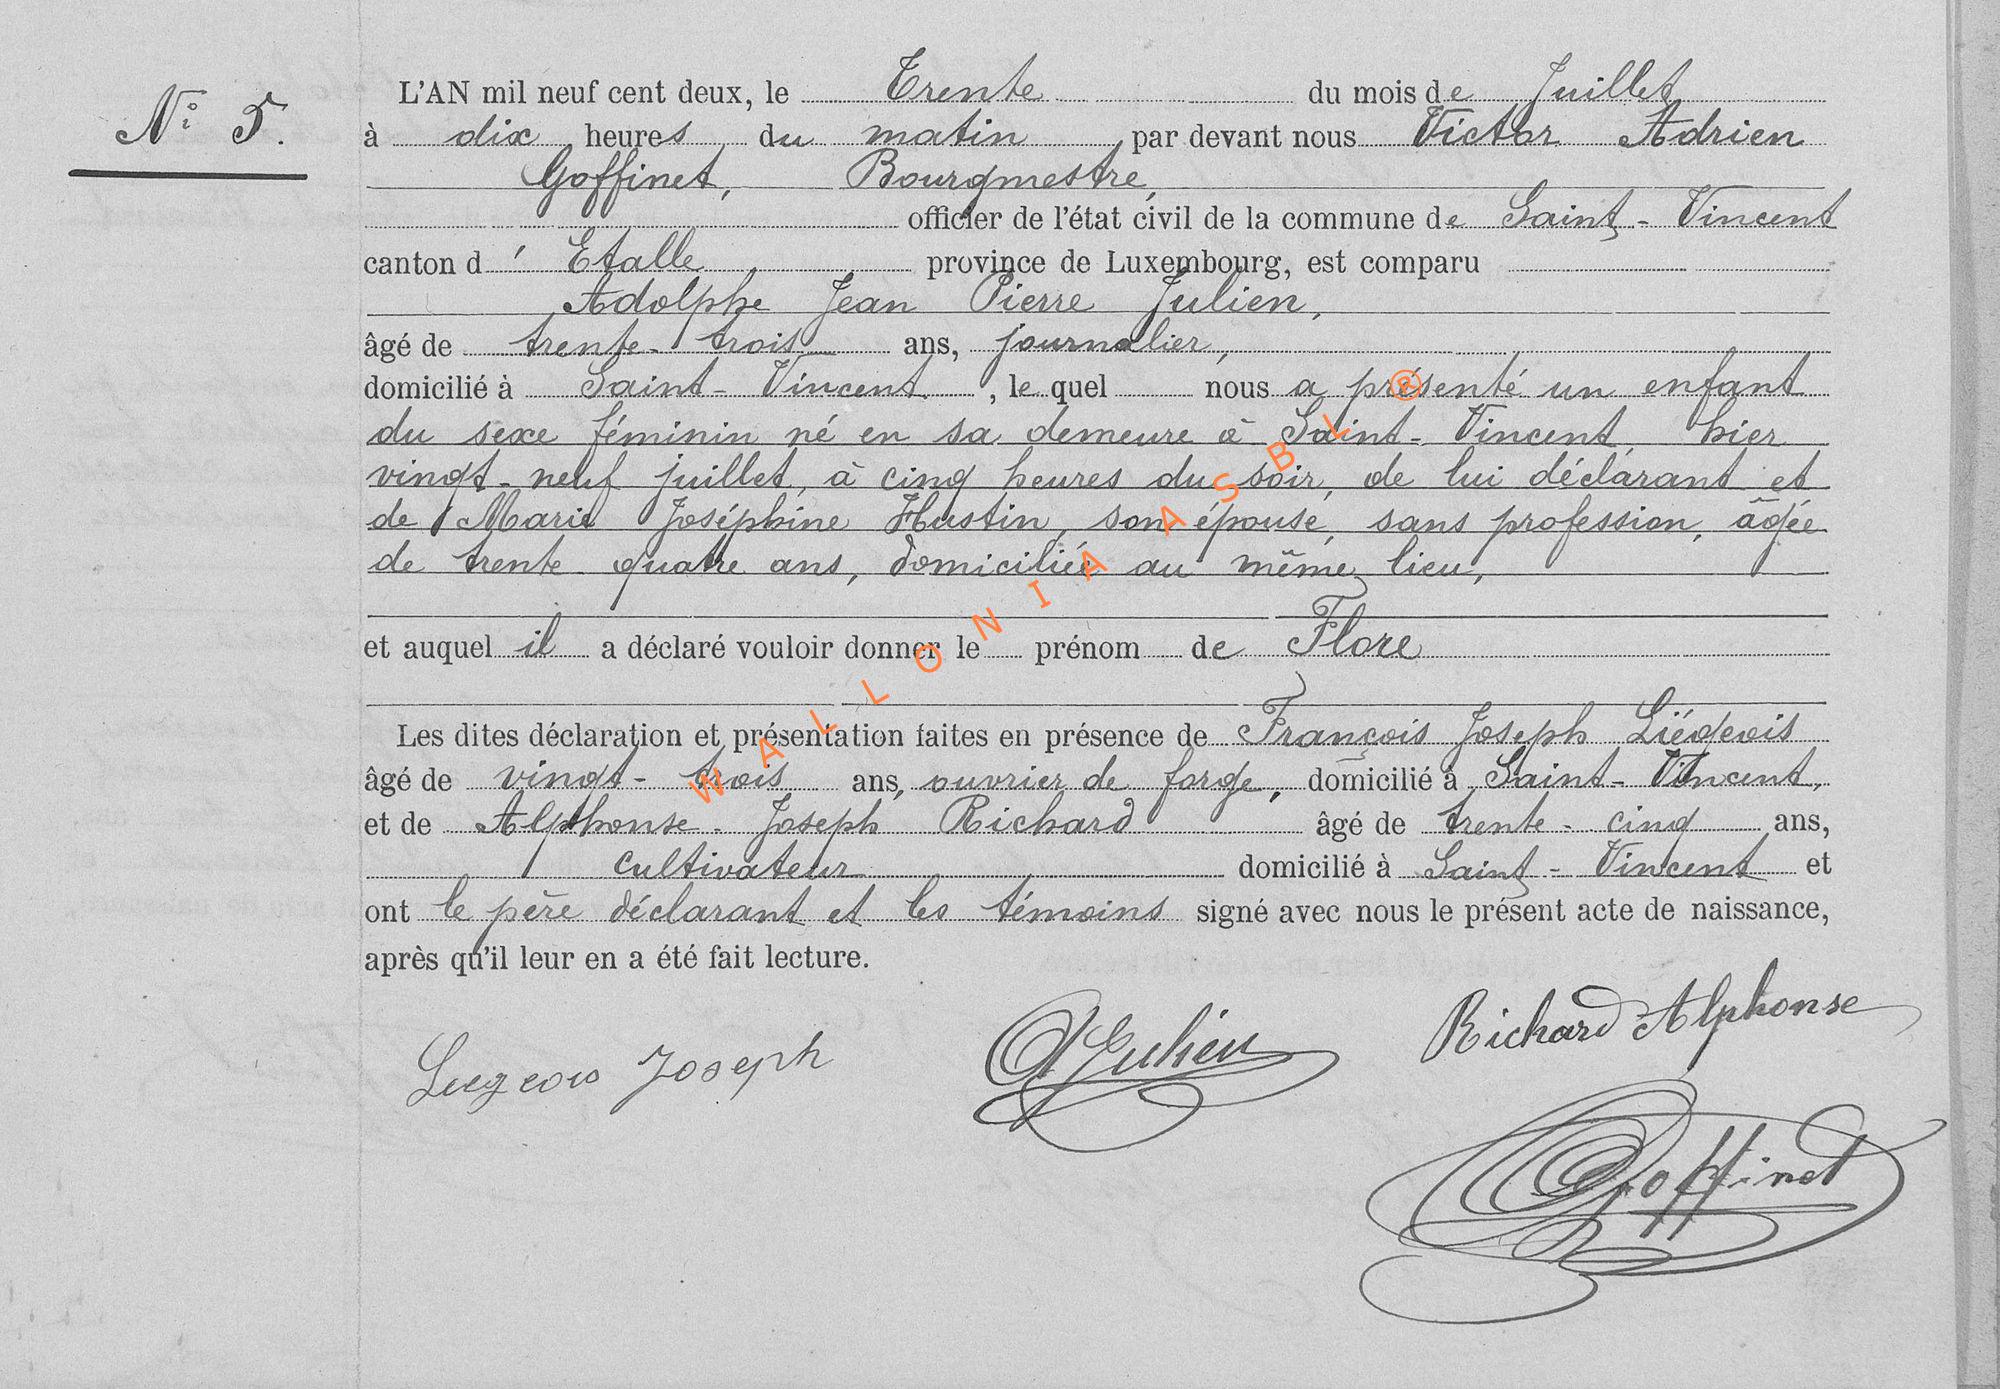 N° 5.
L'AN mil neuf cent deux, le Trente du mois de Juillet
à dix heures du matin par devant nous Victor Adrien
Goffinet, Bourgmestre,
officier de l'état civil de la commune de Saint-Vincent
canton d'Etalle province de Luxembourg, est comparu
Adolphe Jean Pierre Julien,
âgé de trente-trois ans, journalier,
domicilié à Saint-Vincent, le quel nous a présenté un enfant
du sexe féminin né en sa demeure à Saint-Vincent hier
vingt-neuf juillet, à cinq heures du soir, de lui déclarant et
de Marie Joséphine Hustin, son épouse, sans profession, âgée
de trente quatre ans, domiciliée au même lieu,
et auquel il a déclaré vouloir donner le prénom de Flore
Les dites déclaration et présentation faites en présence de François Joseph Liégeois
âgé de vingt-trois ans, ouvrier de forge, domicilié à Saint-Vincent,
et de Alphonse-Joseph Richard âgé de trente-cinq ans,
cultivateur domicilié à Saint-Vincent et
ont le père déclarant et les témoins signé avec nous le présent acte de naissance,
après qu'il leur en a été fait lecture.
Liegeois Joseph AJulien Richard Alphonse
Goffinet
WALLONIA ASBL ®